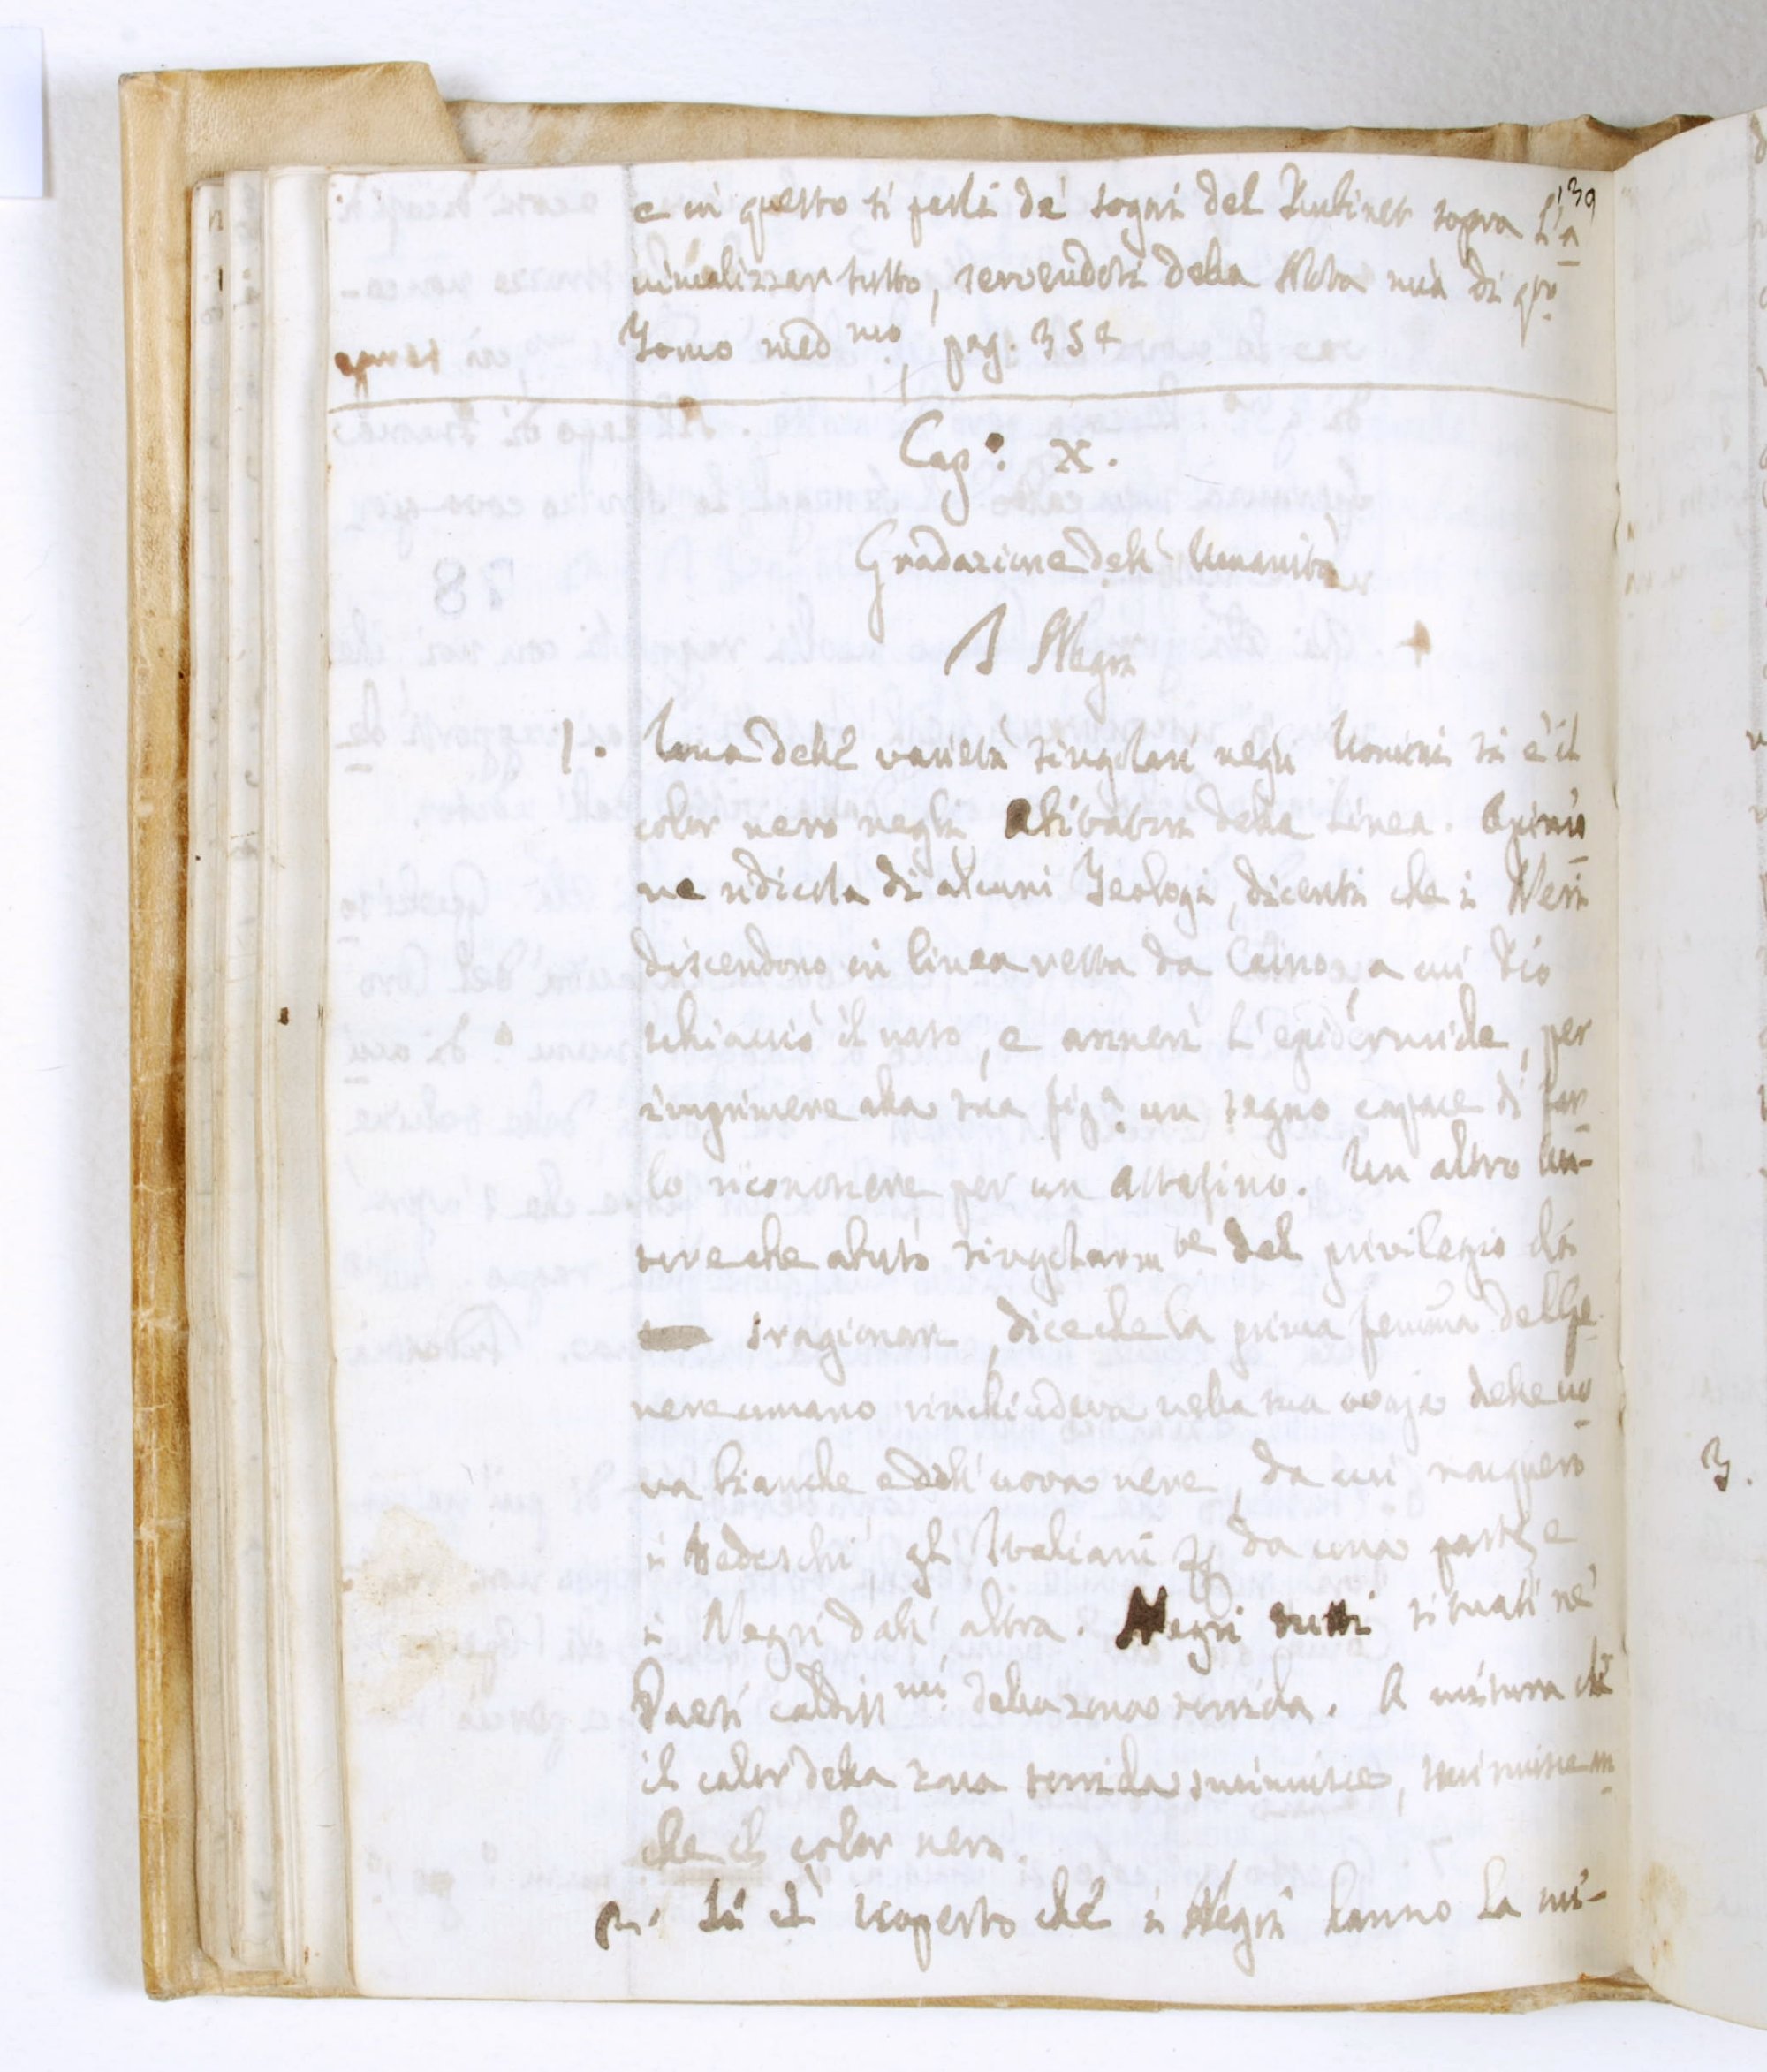 139
e in questo si parla de' sogni del Rubinet sopra l'a
nimalizzar tutto, servendosi della Nota mia di qto
Tomo med.mo, pag. 354
Cap.º X.
Gradazione dell' Umanità
I Negri
1. Una delle varietà singolari negli Uomini si è il
color nero negli abitatori della Linea. Opinio
ne ridicola di alcuni Teologi, dicenti che i Neri
discendono in linea retta da Caino, a cui Dio
schiacciò il naso, e annerì l'epidermide, per
imprimere alla sua figa un segno capace di far
lo riconoscere per un assassino. Un altro Au-
tore che abusò singolarmte del privilegio di
sragionar, dice che la prima femina del Ge
nere umano rinchiudeva nella sua ovaja delle uo
va bianche e dell' uova nere, da cui nacquero
i Tedeschi, gl' Italiani da una parte, e
i Negri dall' altra. Negri tutti situati ne'
Paesi caldissmi della zona torrida. A misura che
il calor della zona torrida sminuisce, sminuisce an
che il color nero.
2. Si è scoperto che i Negri hanno la mi-
3.